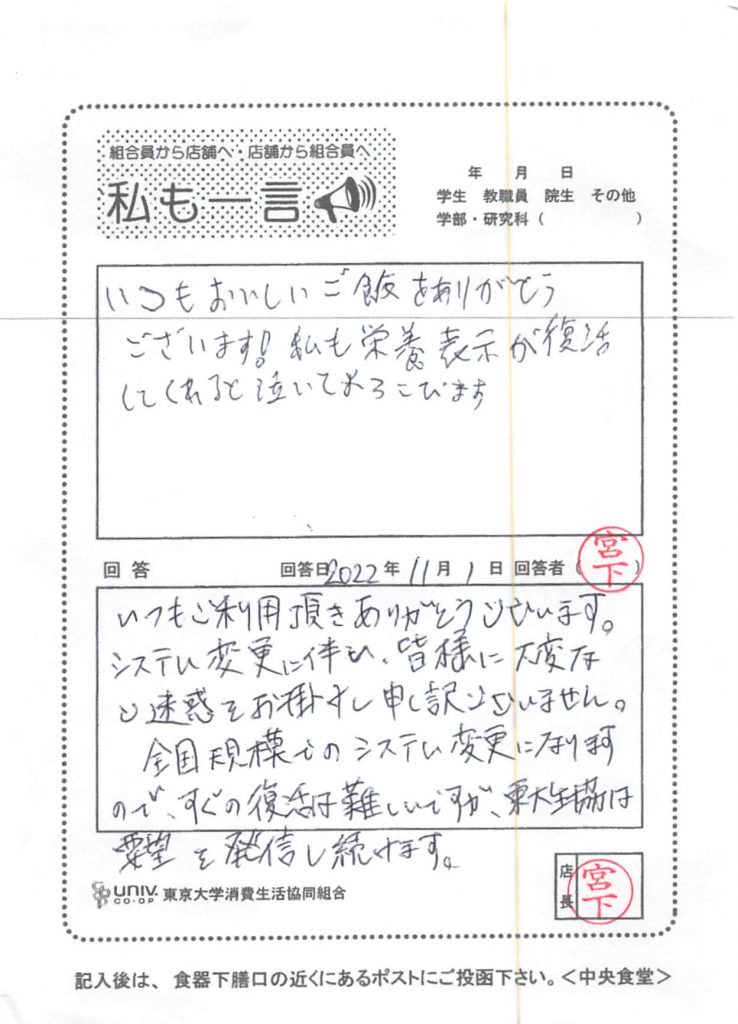 組合員から店舗へ・店舗から組合員へ
私も一言
年 月 日
学生 教職員 院生 その他
学部・研究科( )
いつもおいしいご飯をありがとう
ございます!私も栄養表示が復活
してくれると泣いてよろこびます
回答 回答日2022年11月1日 回答者(宮下)
いつもご利用頂きありがとうございます。
システム変更に伴い、皆様に大変な
ご迷惑をお掛けし申し訳ございません。
全国規模でのシステム変更になります
ので、すぐの復活は難しいですが、東大生協は
要望を発信し続けます。
UNIV. CO-OP 東京大学消費生活協同組合
店長 宮下
記入後は、食器下膳口の近くにあるポストにご投函下さい。<中央食堂>